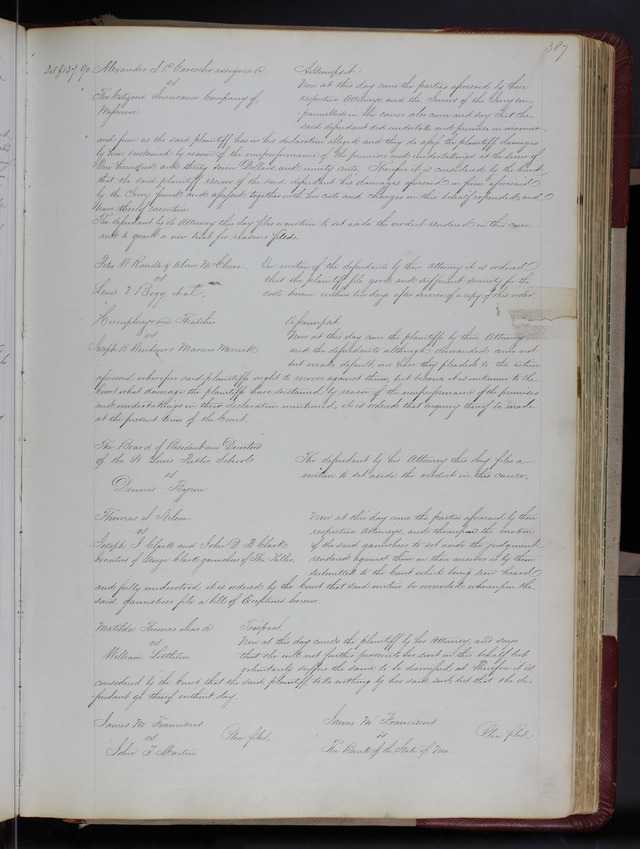 387
Assumpsit
Now at this day come the parties aforesaid by their
respective Attorneys and the Jurors of the Jury em-
pannelled in the cause also come and say that the
said defendant did undertake and promise in manner
vs
The Citizens Insurance Company of
Missouri
and form as the said plaintiff has in his declaration alleged and they do assess the plaintiffs damages
by him sustained by reason of the nonperformance of the promises and undertakings at the sum of
One hundred and thirty seven Dollars and ninety cents, Therefore it is considered by the Court
that the said plaintiff recover of the said defendant his damages aforesaid in form aforesaid
by the Jury found and assessed together with his costs and charges in this behalf expended and
have thereof execution
The defendant by its Attorney this day files a motion to set aside the verdict rendered in this cause
and to grant a new trial for reasons filed.
vs
Lewis V Bogy et al.
On motion of the defendants by their Attorney it is ordered
that the plaintiffs file good and sufficient security for the
costs herein within days after service of a copy of this order
Humphrey and Thatcher
vs
Marcus Merrick
Assumpsit
Now at this day come the plaintiffs by their Attorney
and the defendants although demanded come not
but make default nor have they pleaded to the action
aforesaid wherefore said plaintiffs ought to recover against them, but because it is unknown to the
Court what damages the plaintiffs have sustained by reason of the nonperformance of the promises
and undertakings in their declaration mentioned, it is ordered that inquiry thereof be made
at the present term of the Court.
The Board of President and Directors
of the St Louis Public Schools
vs
Dennis Byrne
The defendant by his Attorney this day files a
motion to set aside the verdict in this cause.
Thomas S Nelson
vs
Joseph J Clark and John D B Clark
Executors of George Clark garnishees of
Now at this day come the parties aforesaid by their
respective Attorneys and thereupon the motion
of the said garnishees to set aside the judgment
rendered against them on their answer is by them
submitted to the Court which being seen heard
and fully understood it is ordered by the Court that said motion be overruled wherefore the
said garnishees file a bill of Exceptions herein
Matilda Thomas alias
vs
William Littleton
Trespass
Now at this day comes the plaintiff by her Attorney, and says
that she will not further prosecute her suit in this behalf but
voluntarily suffers the same to be dismissed Therefore it is
considered by the Court that the said plaintiff take nothing by her said suit, but that the de-
fendant go thereof without day
James M Franciscus
vs
John F Martin
Plea filed,
James M Franciscus
vs
The Bank of the State of Mo
Plea filed